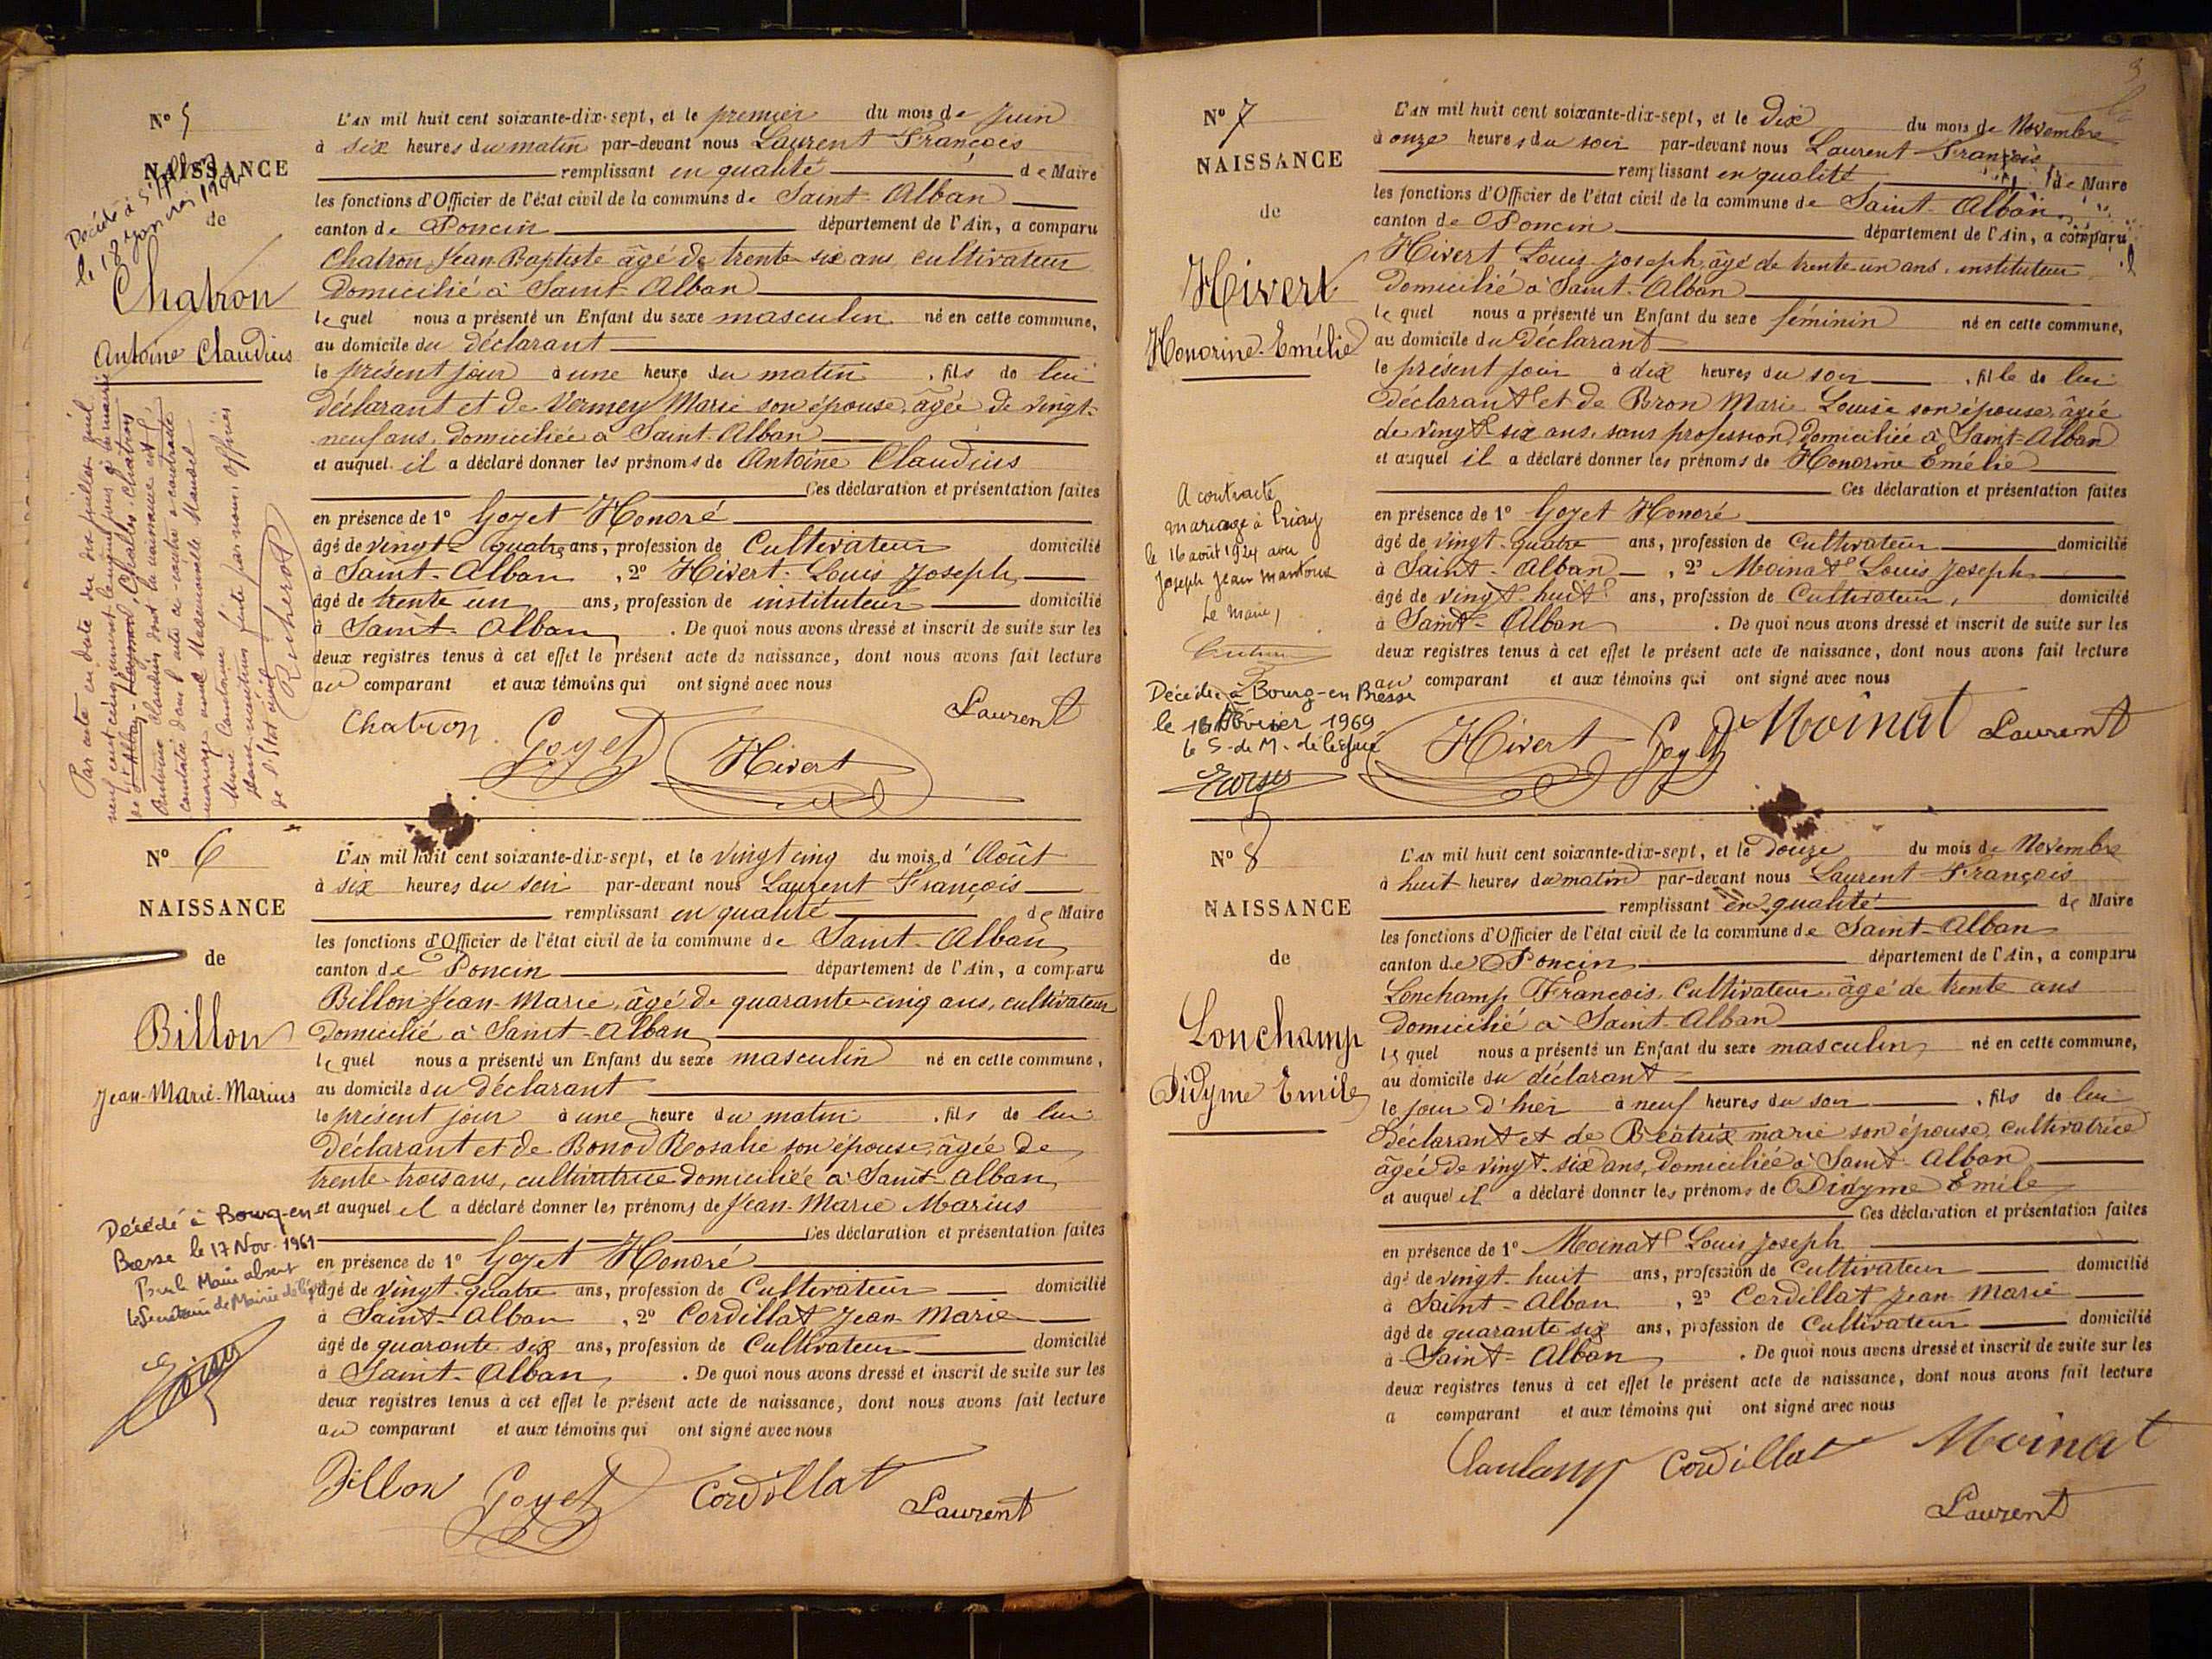 Nº 5
NAISSANCE
de
Chatron
Antoine Claudius
Décédé à St Alban
L'AN mil huit cent soixante-dix-sept, et le premier du mois de Juin
à six heures du matin par-devant nous Laurent François
remplissant en qualité de Maire
les fonctions d'Officier de l'état civil de la commune de Saint-Alban
canton de Poncin département de l'Ain, a comparu
Chatron Jean-Baptiste âgé de trente six ans, cultivateur
domicilié à Saint-Alban
lequel nous a présenté un Enfant du sexe masculin né en cette commune,
au domicile du déclarant
le présent jour à une heure du matin, fils de lui
déclarant et de Vermey Marie son épouse, âgée de vingt-
neuf ans, domiciliée à Saint-Alban
et auquel il a déclaré donner les prénoms de Antoine Claudius
Ces déclaration et présentation faites
en présence de 1º Goyet Honoré
âgé de vingt-quatre ans, profession de Cultivateur domicilié
à Saint-Alban, 2º Hivert Louis Joseph
âgé de trente un ans, profession de instituteur domicilié
à Saint-Alban. De quoi nous avons dressé et inscrit de suite sur les
deux registres tenus à cet effet le présent acte de naissance, dont nous avons fait lecture
au comparant et aux témoins qui ont signé avec nous
Chatron Goyet Hivert Laurent
Par acte en date du dix juillet mil
neuf cent cinq
Antoine Claudius dont la naissance est
constatée dans l'acte ci-contre a contracté
mariage avec Mademoiselle
de l'Etat civil
Nº 6
NAISSANCE
de
Billon
Jean-Marie-Marius
L'AN mil huit cent soixante-dix-sept, et le vingt cinq du mois d'Août
à six heures du soir par-devant nous Laurent François
remplissant en qualité de Maire
les fonctions d'Officier de l'état civil de la commune de Saint-Alban
canton de Poncin département de l'Ain, a comparu
Billon Jean-Marie, âgé de quarante-cinq ans, cultivateur
domicilié à Saint-Alban
lequel nous a présenté un Enfant du sexe masculin né en cette commune,
au domicile du déclarant
le présent jour à une heure du matin, fils de lui
déclarant et de Bonod Rosalie son épouse, âgée de
trente trois ans, cultivatrice domiciliée à Saint-Alban
et auquel il a déclaré donner les prénoms de Jean-Marie Marius
Ces déclaration et présentation faites
en présence de 1º Goyet Honoré
âgé de vingt-quatre ans, profession de Cultivateur domicilié
à Saint-Alban, 2º Cordillat Jean Marie
âgé de quarante six ans, profession de Cultivateur domicilié
à Saint-Alban. De quoi nous avons dressé et inscrit de suite sur les
deux registres tenus à cet effet le présent acte de naissance, dont nous avons fait lecture
au comparant et aux témoins qui ont signé avec nous
Billon Goyet Cordillat Laurent
Décédé à Bourg-en
Bresse le 17 Nov. 1961
Pour le Maire absent
le Secrétaire de Mairie délégué
Nº 7
NAISSANCE
de
Hivert
Honorine-Emélie
L'AN mil huit cent soixante-dix-sept, et le dix du mois de Novembre
à onze heures du soir par-devant nous Laurent François
remplissant en qualité de Maire
les fonctions d'Officier de l'état civil de la commune de Saint-Alban
canton de Poncin département de l'Ain, a comparu
Hivert Louis Joseph, âgé de trente un ans, instituteur
domicilié à Saint-Alban
lequel nous a présenté un Enfant du sexe féminin né en cette commune,
au domicile du déclarant
le présent jour à dix heures du soir, fille de lui
déclarant et de Bron Marie Louise son épouse, âgée
de vingt-six ans, sans profession, domiciliée à Saint-Alban
et auquel il a déclaré donner les prénoms de Honorine Emélie
Ces déclaration et présentation faites
en présence de 1º Goyet Honoré
âgé de vingt-quatre ans, profession de Cultivateur domicilié
à Saint-Alban, 2º Moinat Louis Joseph
âgé de vingt-huit ans, profession de Cultivateur, domicilié
à Saint-Alban. De quoi nous avons dressé et inscrit de suite sur les
deux registres tenus à cet effet le présent acte de naissance, dont nous avons fait lecture
au comparant et aux témoins qui ont signé avec nous
Hivert Goyet Moinat Laurent
A contracté
mariage à Priay
le 16 août 1924 avec
Joseph Jean
Le Maire,
Décédée à Bourg-en Bresse
le 16 Février 1969
le S. de M. délégué
Nº 8
NAISSANCE
de
Lonchamp
Didyme Emile
L'AN mil huit cent soixante-dix-sept, et le douze du mois de Novembre
à huit heures du matin par-devant nous Laurent François
remplissant en qualité de Maire
les fonctions d'Officier de l'état civil de la commune de Saint-Alban
canton de Poncin département de l'Ain, a comparu
Lonchamp François, Cultivateur, âgé de trente ans
domicilié à Saint-Alban
lequel nous a présenté un Enfant du sexe masculin né en cette commune,
au domicile du déclarant
le jour d'hier à neuf heures du soir, fils de lui
déclarant et de Béatrix marie son épouse, cultivatrice
âgée de vingt-six ans, domiciliée à Saint-Alban
et auquel il a déclaré donner les prénoms de Didyme Emile
Ces déclaration et présentation faites
en présence de 1º Moinat Louis Joseph
âgé de vingt-huit ans, profession de Cultivateur domicilié
à Saint-Alban, 2º Cordillat Jean Marie
âgé de quarante six ans, profession de Cultivateur domicilié
à Saint-Alban. De quoi nous avons dressé et inscrit de suite sur les
deux registres tenus à cet effet le présent acte de naissance, dont nous avons fait lecture
a comparant et aux témoins qui ont signé avec nous
Cordillat Moinat
Laurent